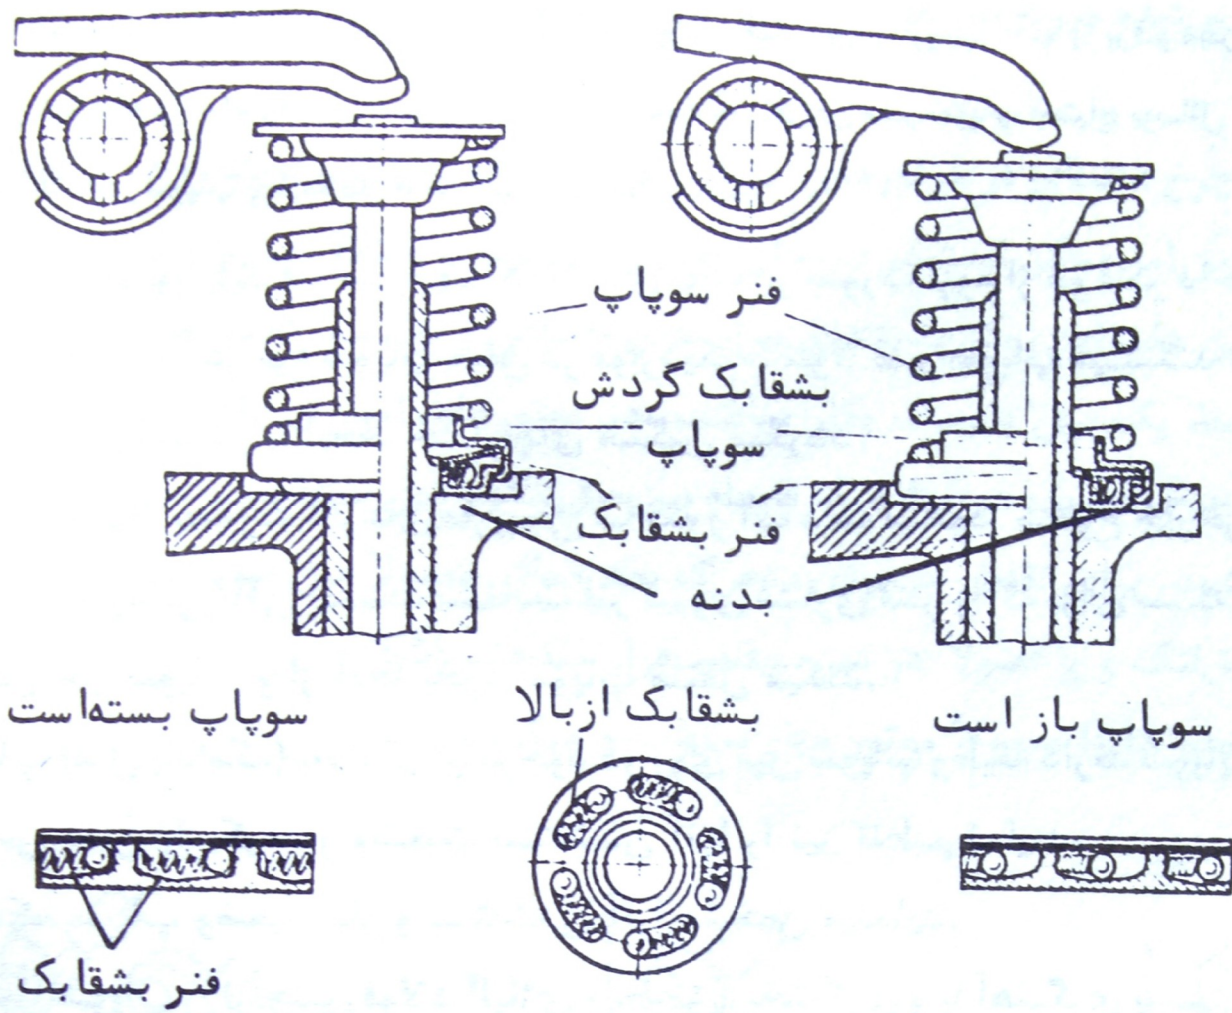 فنر سوپاپ
بشقابک گردش
سوپاپ
فنر بشقابک
بدنه
سوپاپ بسته‌است
بشقابک ازبالا
سوپاپ باز است
فنر بشقابک